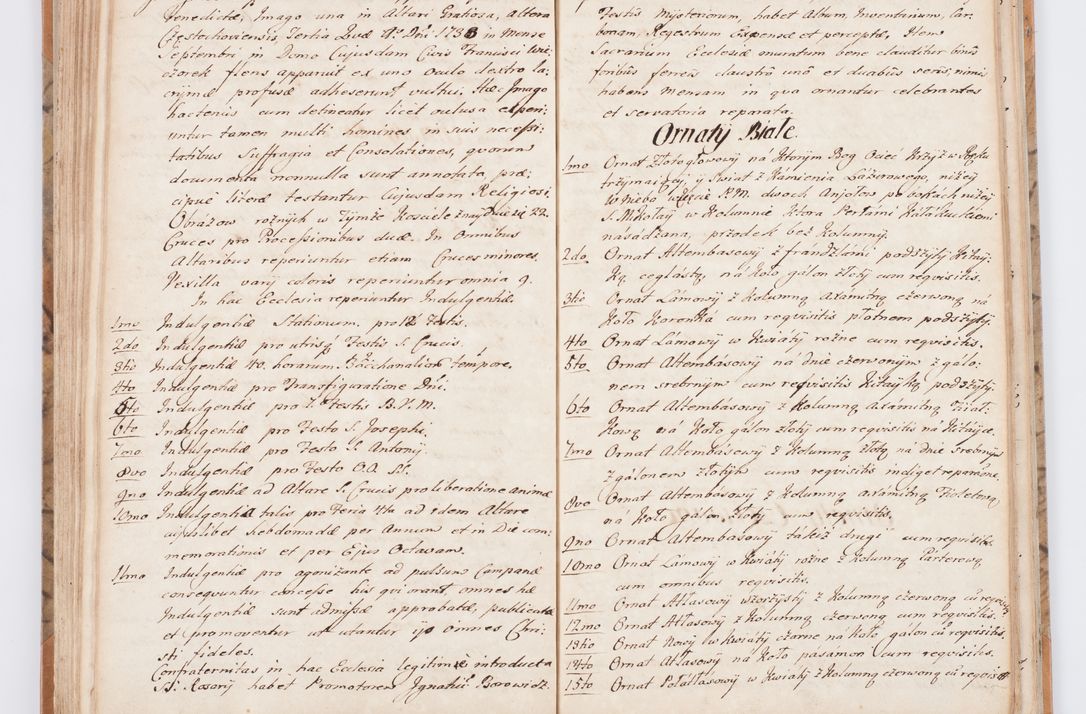 Venedictæ, Imago una in Altari Gratiosa, altera
Częstochoviensis, Tertia Divæ A° Dni 1733 in Mense
Septembri in Domo Cujusdam Civis Francisci Wie-
czorek flens apparuit ex uno oculo dextro la-
crymæ profusæ adheserunt vultui. Hæc Imago
hactenus cum delineatur licet oclusa experi-
untur tamen multi homines in suis necessi-
tatibus Suffragia et Consolationes, quorum
documenta nonnulla sunt annotata, præ-
cipuè literæ testantur Cujusdam Religiosi
Obrazow rożnych w Tymże Kosciele znayduie się 22.
Cruces pro Processionibus duæ. In Omnibus
Altaribus reperiuntur etiam Cruces minores.
Vexilla varij coloris reperiuntur omnia 9.
In hac Ecclesia reperiuntur Indulgentiæ.
1mo Indulgentiæ Stationum pro 12 Festis.
2do Indulgentiæ pro utrisq Festis S. Crucis.
3tio Indulgentiæ 40. horarum. Bacchanaliorum tempore.
4to Indulgentiæ pro Transfiguratione Dni.
5to Indulgentiæ pro 7. Festis B.V.M.
6to Indulgentiæ pro Festo S. Josephi.
7mo Indulgentiæ pro Festo S. Antonij
8vo Indulgentiæ pro Festo O.O. SS.
9no Indulgentiæ ad Altare S. Crucis pro liberatione animæ
10mo Indulgentiæ talis pro Feria 4ta ad idem Altare
cujuslibet hebdomadæ per Annum et in Die com-
memorationis et per Ejus Octavam.
11mo Indulgentiæ pro agonizante ad pulsum Campanæ
consequuntur concessæ his qui orant, omnes hæ
Indulgentiæ sunt admissæ approbatæ, publicatæ
et promoventur ut utantur ijs omnes Chri-
sti fideles.
Confraternitas in hac Ecclesia legitimè introducta
SS. Rosarij habet Promotorem Ignatiū Borowicz
Testis Mysteriorum, habet Album, Inventarium, Car-
bonam, Regestrum Expensæ et perceptæ. Item
Sacrarium Ecclesiæ muratum bene clauditur binis
foribus ferreis claustrô unô et duabus seris, nimis
habens Mensam in qua ornantur celebrantes
et servatoria reparata.
Ornaty Białe.
1mo Ornat Złotogłowowy na Ktorym Bog Ociec Krzyż w Ręku
trzymaiący y Swiat z Kamienia Lazurowego, niżey
Wniebo Wzięcie P.M. dwoch Aniołow po bokach niżey
S. Mikołay w Kolumnie Ktora Perłami Kałakuckiemi
nasadzana, przodek bez Kolumny.
2do Ornat Altembasowy z frandzlami podszyty Kitay-
Ką ceglastą, na Koło galon złoty cum requisitis.
3tio Ornat Lamowy z Kolumną axamitną czerwoną na
Koło Koronka cum requisitis płotnem podszyty.
4to Ornat Lamowy w Kwiaty rożne cum requisitis.
5to Ornat Altembasowy na dnie czerwonym z galo-
nem srebrnym cum requisitis Kitayką podszyty
6to Ornat Altembasowy z Kolumną Axamitną Fiiał-
Kową na Koło galon złoty cum requisitis na Kitayce.
7mo Ornat Altembasowy z Kolumną złotą na dnie Srebrnym
z galonem Złotym cum requisitis indiget reparaōne.
8vo Ornat Altembasowy z Kolumną axamitną Fioletową
na Koło galon Złoty cum requisitis.
9no Ornat Altembasowy takiż drugi cum requisitis
10mo Ornat Lamowy w Kwiaty rożne z Kolumną Parterową
cum omnibus requisitis.
11mo Ornat Atłasowy wzorzysty z Kolumną czerwoną cū requisitis
12mo Ornat Atłasowy z Kolumną czerwoną cum requisitis.
13tio Ornat Nowy w Kwiaty czarne na Koło galon cū requisitis,
14to Ornat Atłasowy na Koło pasamon cum requisitis.
15to Ornat Połatłasowy w Kwiaty z Kolumną czerwoną cū requisitis